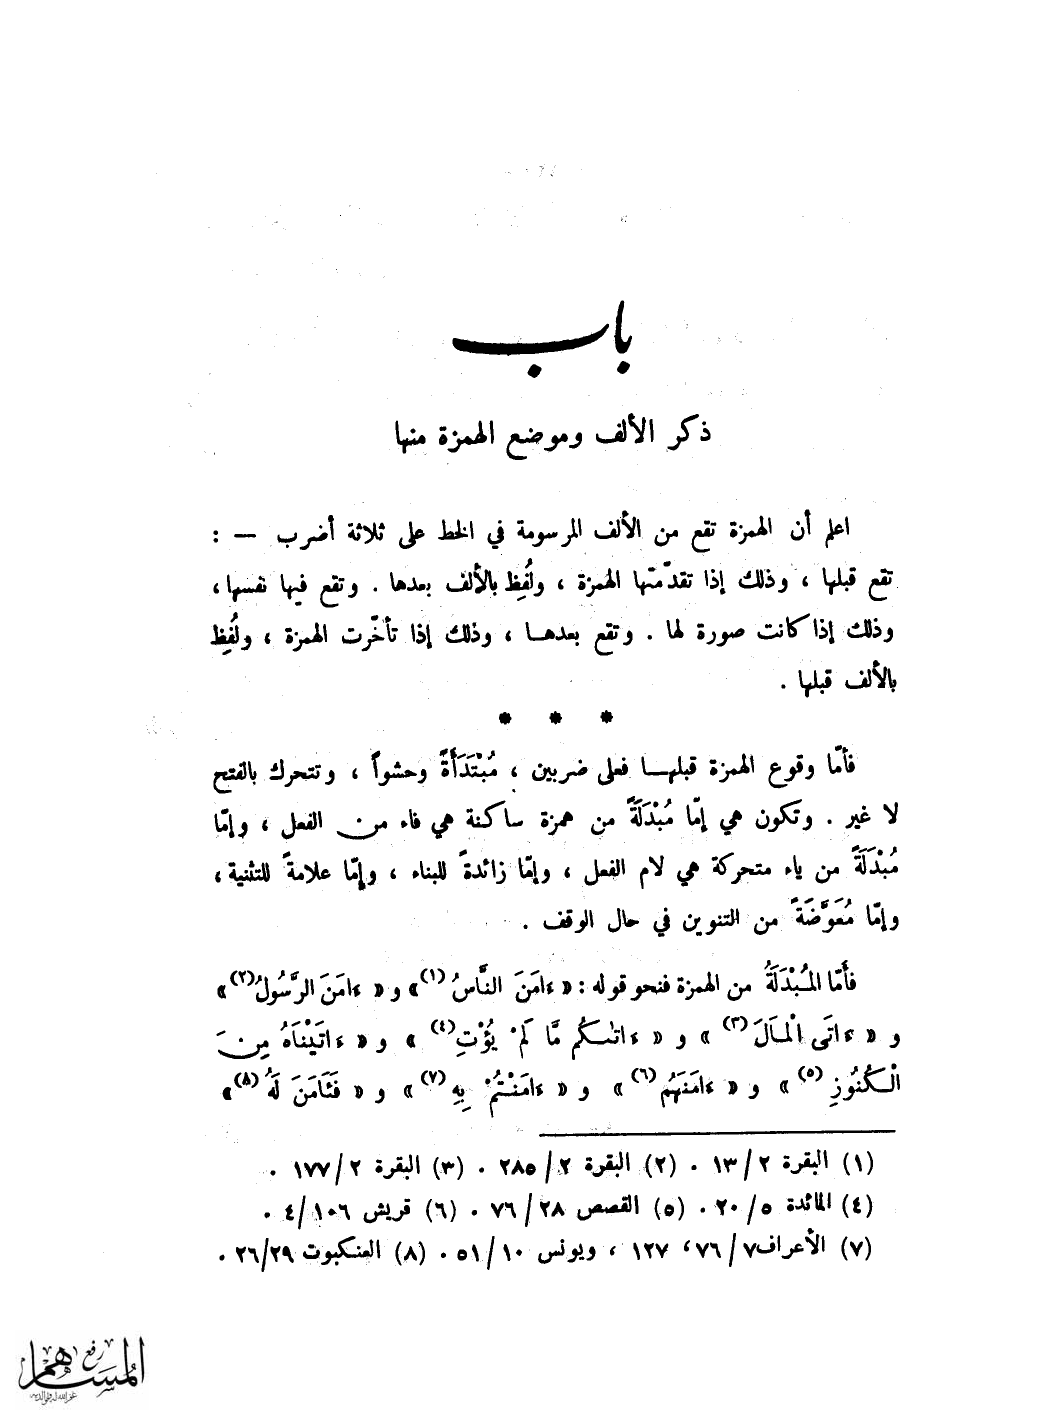 باب
ذكر الألف وموضع الهمزة منها
اعلم أن الهمزة تقع من الألف المرسومة في الخط على ثلاثة أضرب — :
تقع قبلها ، وذلك إذا تقدّمتها الهمزة ، ولُفِظ بالألف بعدها . وتقع فيها نفسها ،
وذلك إذا كانت صورة لها . وتقع بعدهـا ، وذلك إذا تأخّرت الهمزة ، ولُفِظ
بالألف قبلها .
* * *
فأمّا وقوع الهمزة قبلهـا فعلى ضربين ، مُبْتَدَأَةً وحشواً ، وتتحرك بالفتح
لا غير . وتكون هي إمّا مُبْدَلَةً من همزة ساكنة هي فاء من الفعل ، وإمّا
مُبْدَلَةً من ياء متحركة هي لام الفعل ، وإمّا زائدةً للبناء ، وإمّا علامةً للتثنية ،
وإمّا مُعَوَّضَةً من التنوين في حال الوقف .
فأَمّا المُبْدَلَةُ من الهمزة فنحو قوله : « ءامَنَ النَّاسُ (١)» و « ءامَنَ الرَّسُولُ(٢)»
و « ءاتَى الْمَالَ (٣) » و « ءاتـٰىكُم مَّا لَمْ يُؤْتِ(٤) » و « ءاتَيْنَاهُ مِنَ
الْكُنُوزِ (٥) » و « ءامَنَهُم (٦) » و « ءامَنْتُمْ بِهِ (٧) » و « فَئَامَنَ لَهُ (٨)»
(١) البقرة ٢/١٣ . (٢) البقرة ٢/٢٨٥ . (٣) البقرة ٢/١٧٧ .
(٤) المائدة ٥/٢٠ . (٥) القصص ٢٨/٧٦ . (٦) قريش ١٠٦/٤ .
(٧) الأعراف ٧/٧٦، ١٢٧ ، ويونس ١٠/٥١ . (٨) العنكبوت ٢٩/٢٦ .
رفع
المساهم
غفر الله له ولوالديه